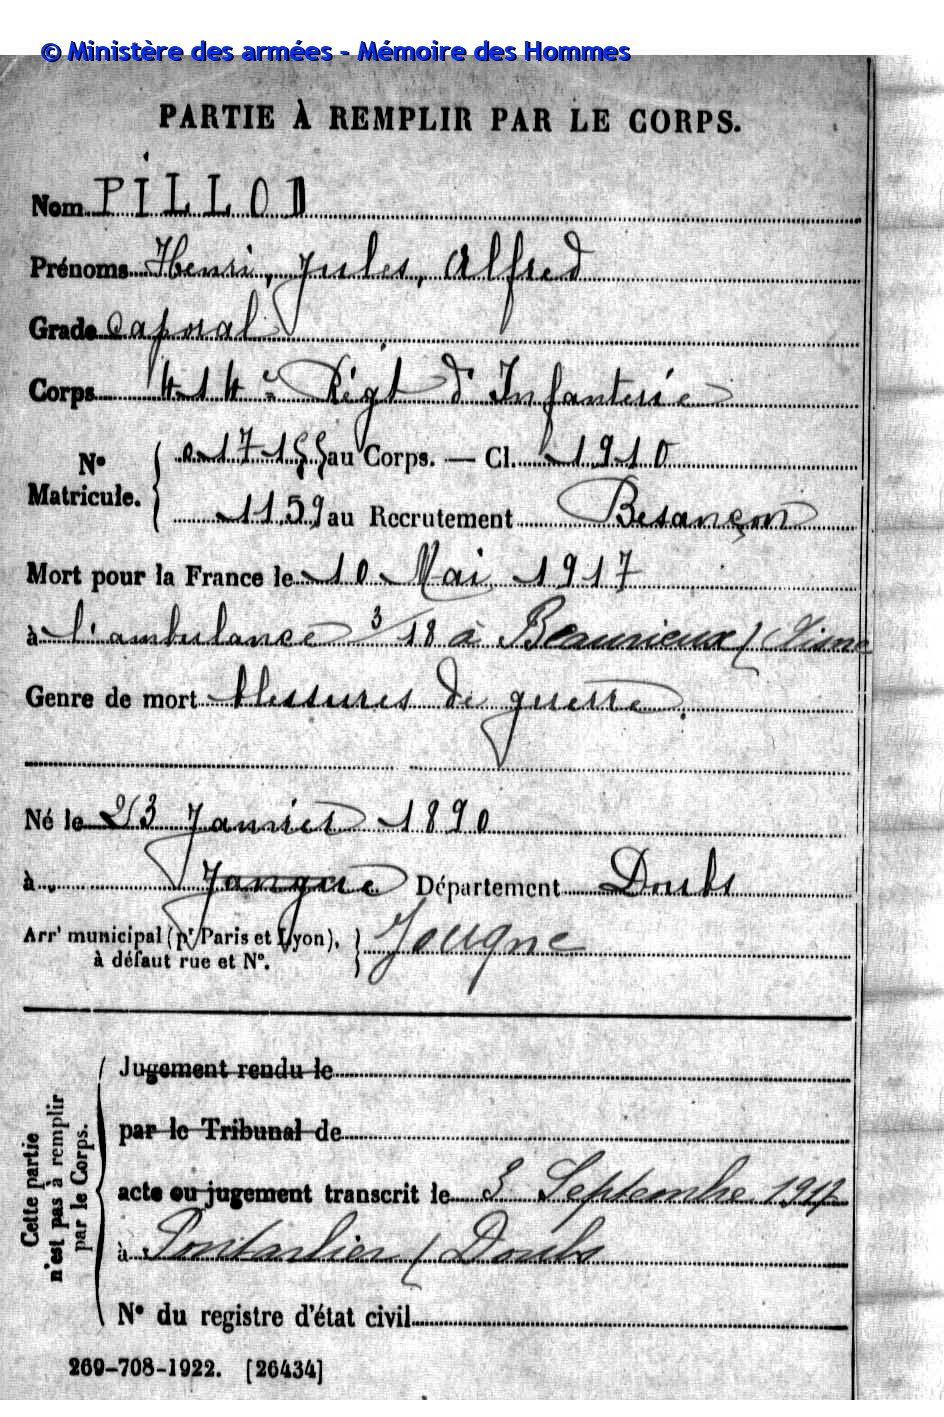 © Ministère des armées - Mémoire des Hommes
PARTIE À REMPLIR PAR LE CORPS.
Nom PILLOD
Prénoms Henri, Jules, Alfred
Grade Caporal
Corps 414e Régt d'Infanterie
N° Matricule. 01755 au Corps. — Cl. 1910
1159 au Recrutement Besançon
Mort pour la France le 10 Mai 1917
à l'ambulance 3/18 à Beaurieux (Aisne
Genre de mort blessures de guerre.
Né le 23 Janvier 1890
à Jangue Département Doubs
Arrt municipal (pr Paris et Lyon), à défaut rue et N°. Jougne
Cette partie n'est pas à remplir par le Corps.
Jugement rendu le
par le Tribunal de
acte ou jugement transcrit le 3 Septembre 1917
à Pontarlier (Doubs
N° du registre d'état civil
269-708-1922. [26434]